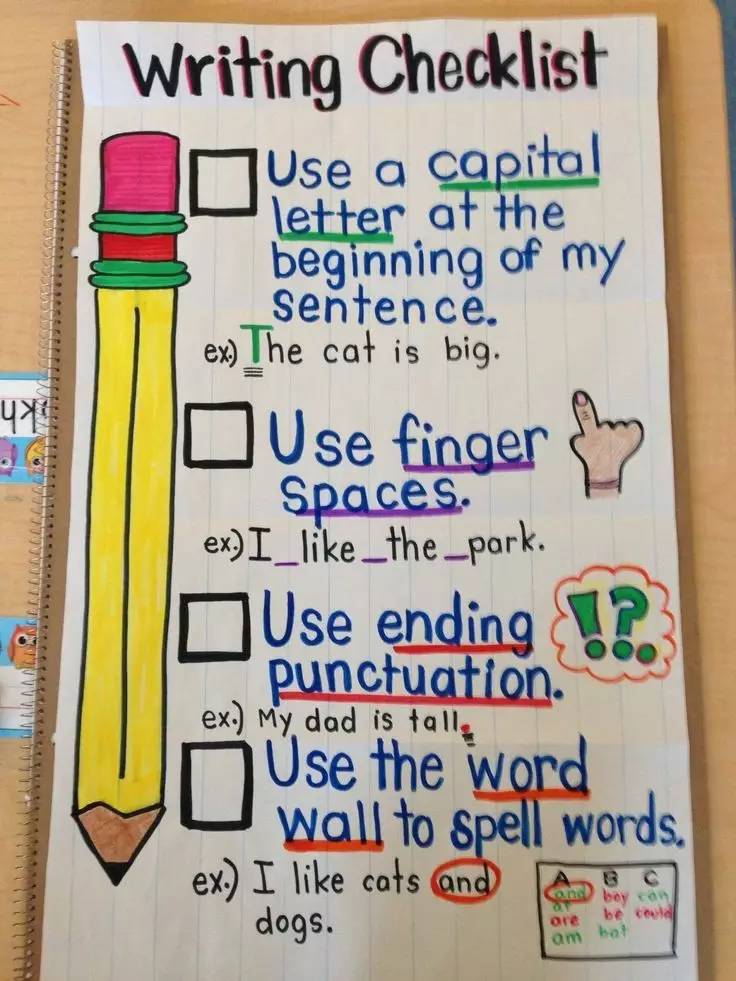 Writing Checklist
Use a capital
letter at the
beginning of my
sentence.
ex.) The cat is big.
Use finger
spaces.
ex.) I_like_the_park.
Use ending
punctuation.
!?.
ex.) My dad is tall.
Use the word
wall to spell words.
ex.) I like cats and
dogs.
A B C
and boy can
at be could
are bat
am
kh